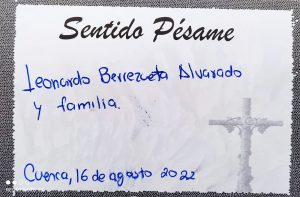 Sentido Pésame
Leonardo Berrezueta Alvarado
y familia.
Cuenca, 16 de agosto 2022